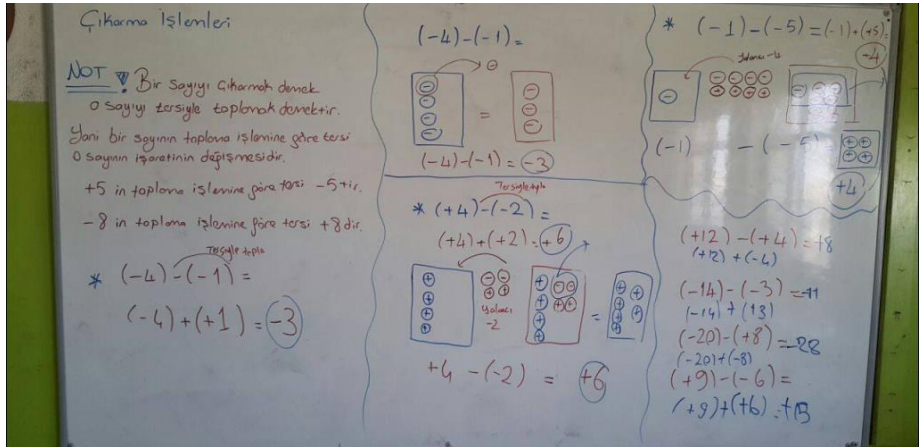 Çıkarma İşlemleri
NOT! Bir Sayıyı Çıkarmak demek
O sayıyı tersiyle toplamak demektir.
Yani bir sayının toplama işlemine göre tersi
O sayının işaretinin değişmesidir.
+5 in toplama işlemine göre tersi -5 tir.
-8 in toplama işlemine göre tersi +8 dir.
Tersiyle topla
* (-4)-(-1)=
(-4)+(+1)=-3
(-4)-(-1)=
=
(-4)-(-1)=-3
Tersiyle topla
* (+4)-(-2)=
(+4)+(+2)=+6
Yalancı
-2
=
+4 -(-2) = +6
* (-1)-(-5)=(-1)+(+5)=
+4
Yalancı -4
(-1) -(-5)=
+4
(+12)-(+4)=+8
(+12)+(-4)
(-14)-(-3)=-11
(-14)+(+3)
(-20)-(+8)=-28
(-20)+(-8)
(+9)-(-6)=
(+9)+(+6)=+15